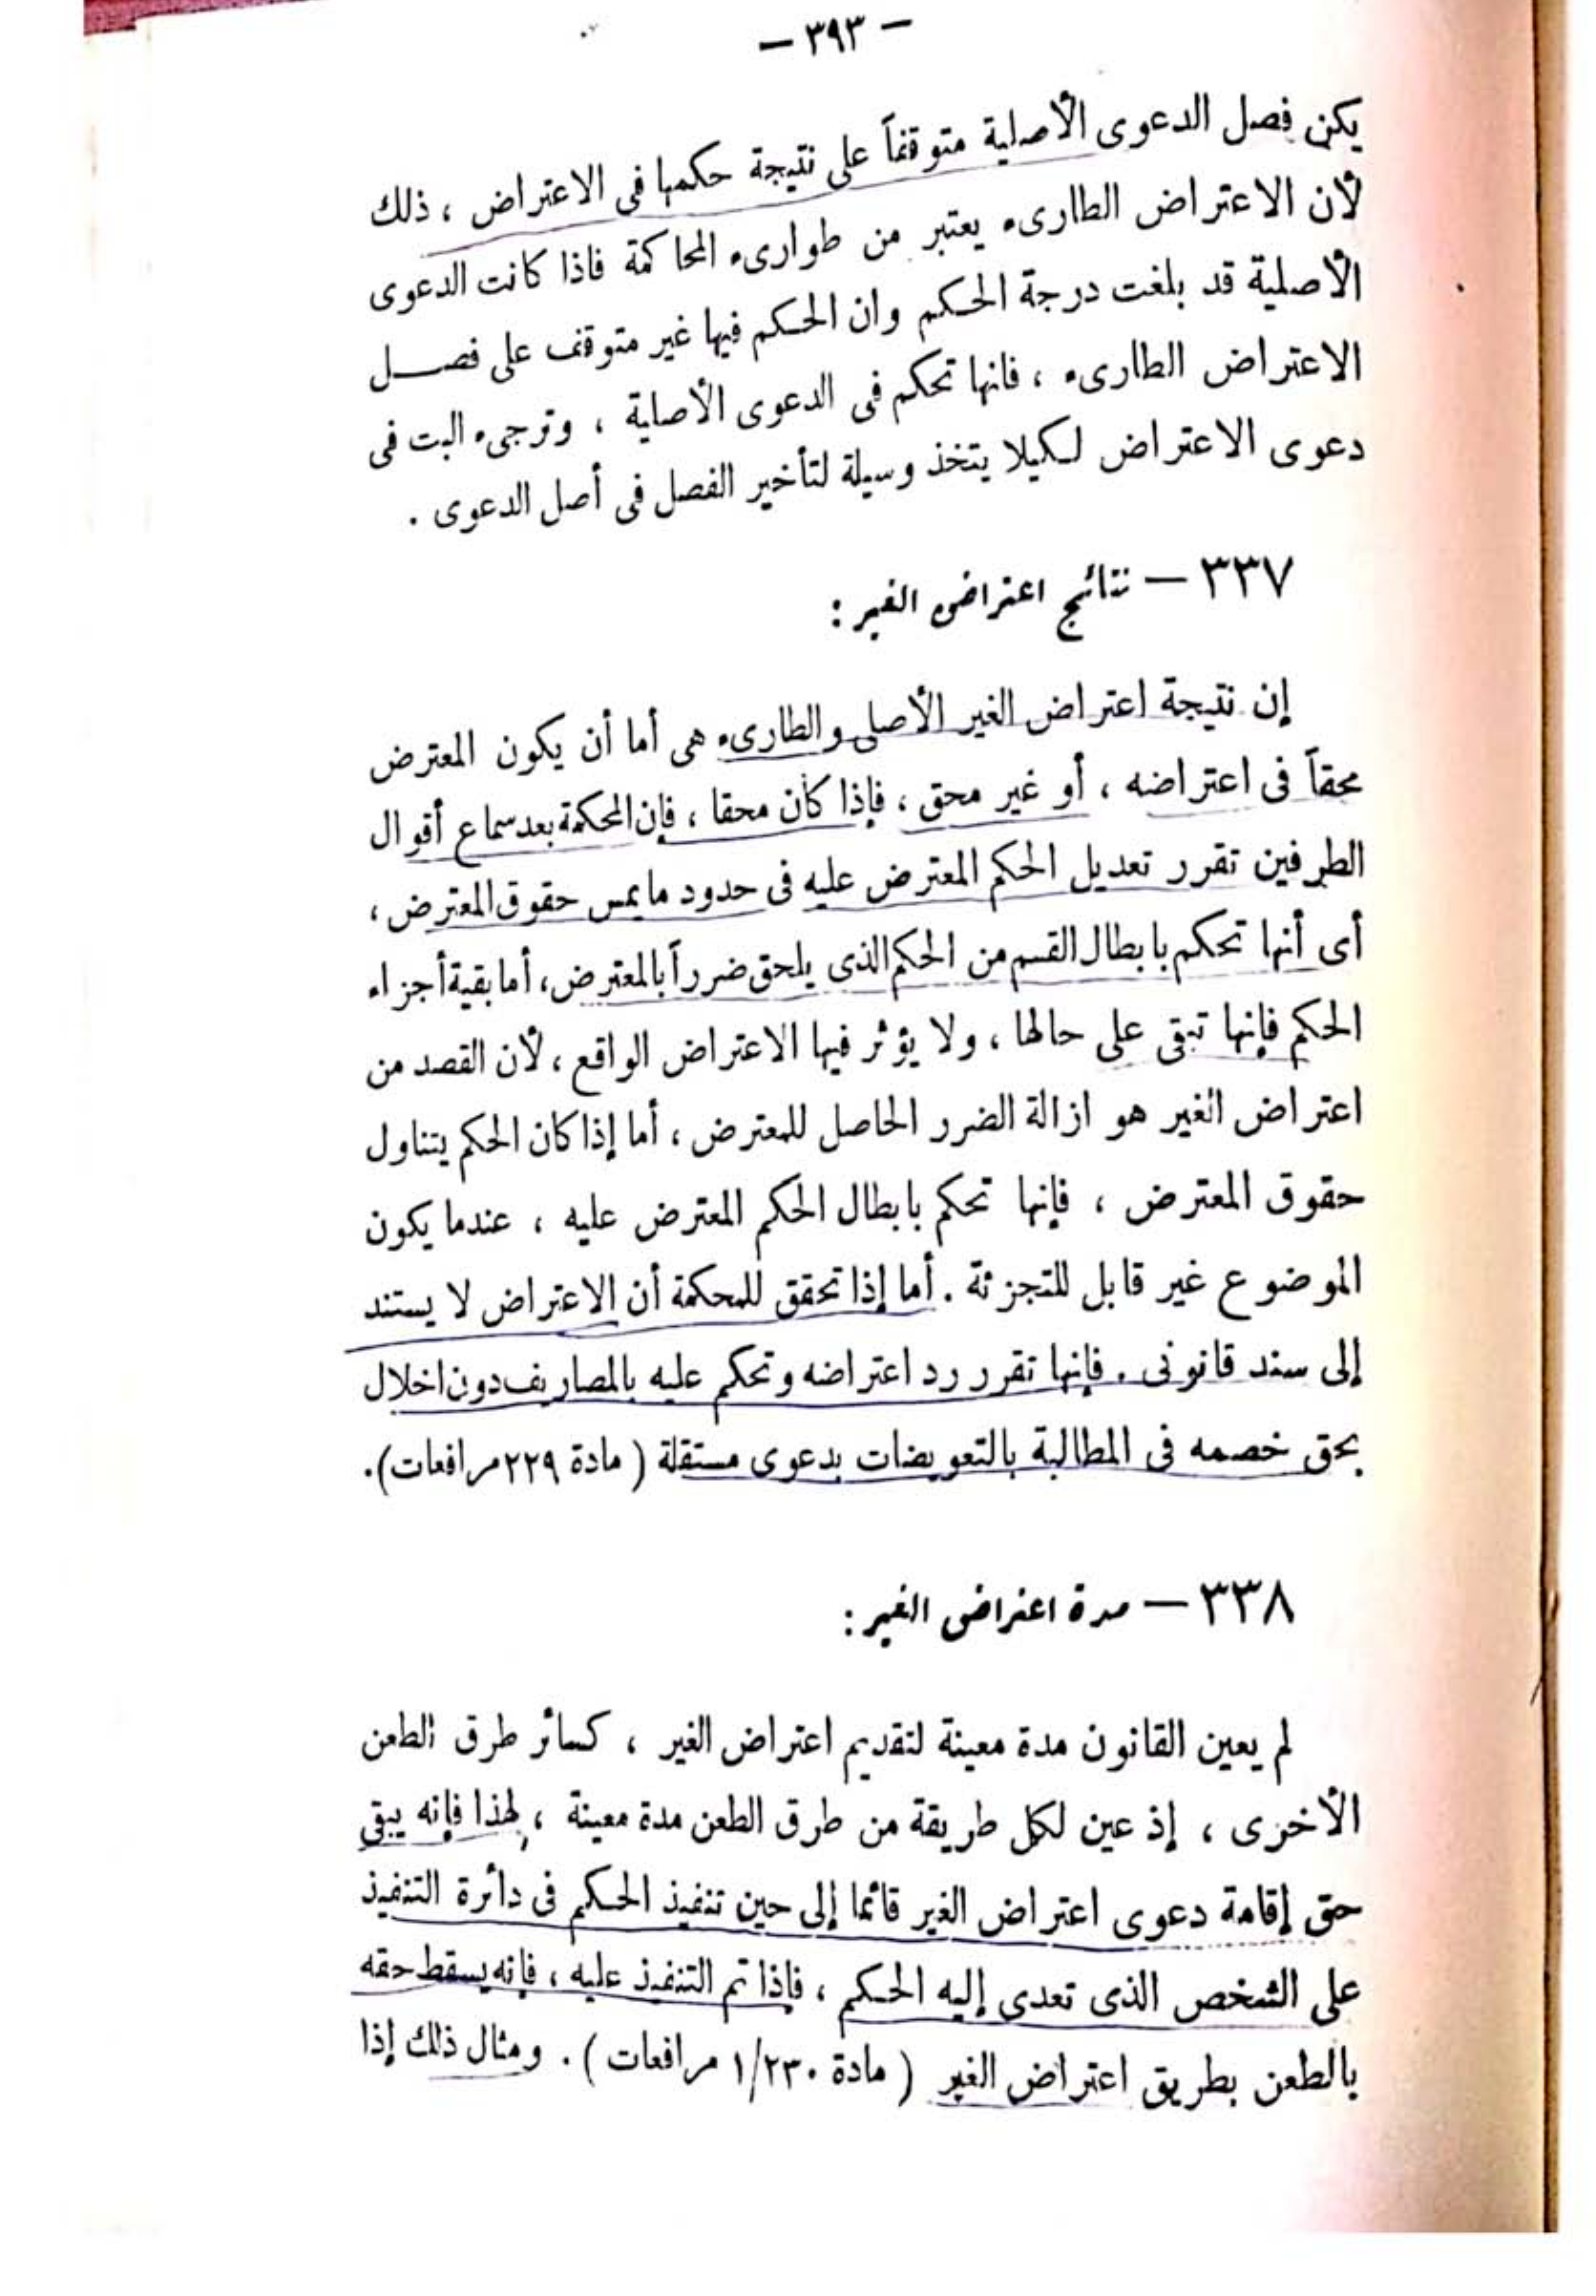 — ٣٩٣ —
يكن فصل الدعوى الأصلية متوقفاً على نتيجة حكمها فى الاعتراض ، ذلك
لأن الاعتراض الطارىء يعتبر من طوارىء المحاكمة فاذا كانت الدعوى
الأصلية قد بلغت درجة الحكم وان الحكم فيها غير متوقف على فصل
الاعتراض الطارىء ، فانها تحكم فى الدعوى الأصلية ، وترجىء البت فى
دعوى الاعتراض لكيلا يتخذ وسيلة لتأخير الفصل فى أصل الدعوى .
٣٣٧ — نتائج اعتراض الغير :
إن نتيجة اعتراض الغير الأصلى والطارىء هى أما أن يكون المعترض
محقاً فى اعتراضه ، أو غير محق ، فإذا كان محقا ، فإن المحكمة بعد سماع أقوال
الطرفين تقرر تعديل الحكم المعترض عليه فى حدود ما يمس حقوق المعترض ،
أى أنها تحكم بابطال القسم من الحكم الذى يلحق ضرراً بالمعترض ، أما بقية أجزاء
الحكم فإنها تبقى على حالها ، ولا يؤثر فيها الاعتراض الواقع ، لأن القصد من
اعتراض الغير هو ازالة الضرر الحاصل للمعترض ، أما إذا كان الحكم يتناول
حقوق المعترض ، فإنها تحكم بابطال الحكم المعترض عليه ، عندما يكون
الموضوع غير قابل للتجزئة . أما إذا تحقق للمحكمة أن الاعتراض لا يستند
إلى سند قانونى . فإنها تقرر رد اعتراضه وتحكم عليه بالمصاريف دون اخلال
بحق خصمه فى المطالبة بالتعويضات بدعوى مستقلة ( مادة ٢٢٩ مرافعات ) .
٣٣٨ — مدة اعتراض الغير :
لم يعين القانون مدة معينة لتقديم اعتراض الغير ، كسائر طرق الطعن
الأخرى ، إذ عين لكل طريقة من طرق الطعن مدة معينة ، لهذا فإنه يبقى
حق إقامة دعوى اعتراض الغير قائما إلى حين تنفيذ الحكم فى دائرة التنفيذ
على الشخص الذى تعدى إليه الحكم ، فإذا تم التنفيذ عليه ، فإنه يسقط حقه
بالطعن بطريق اعتراض الغير ( مادة ١/٢٣٠ مرافعات ) . ومثال ذلك إذا